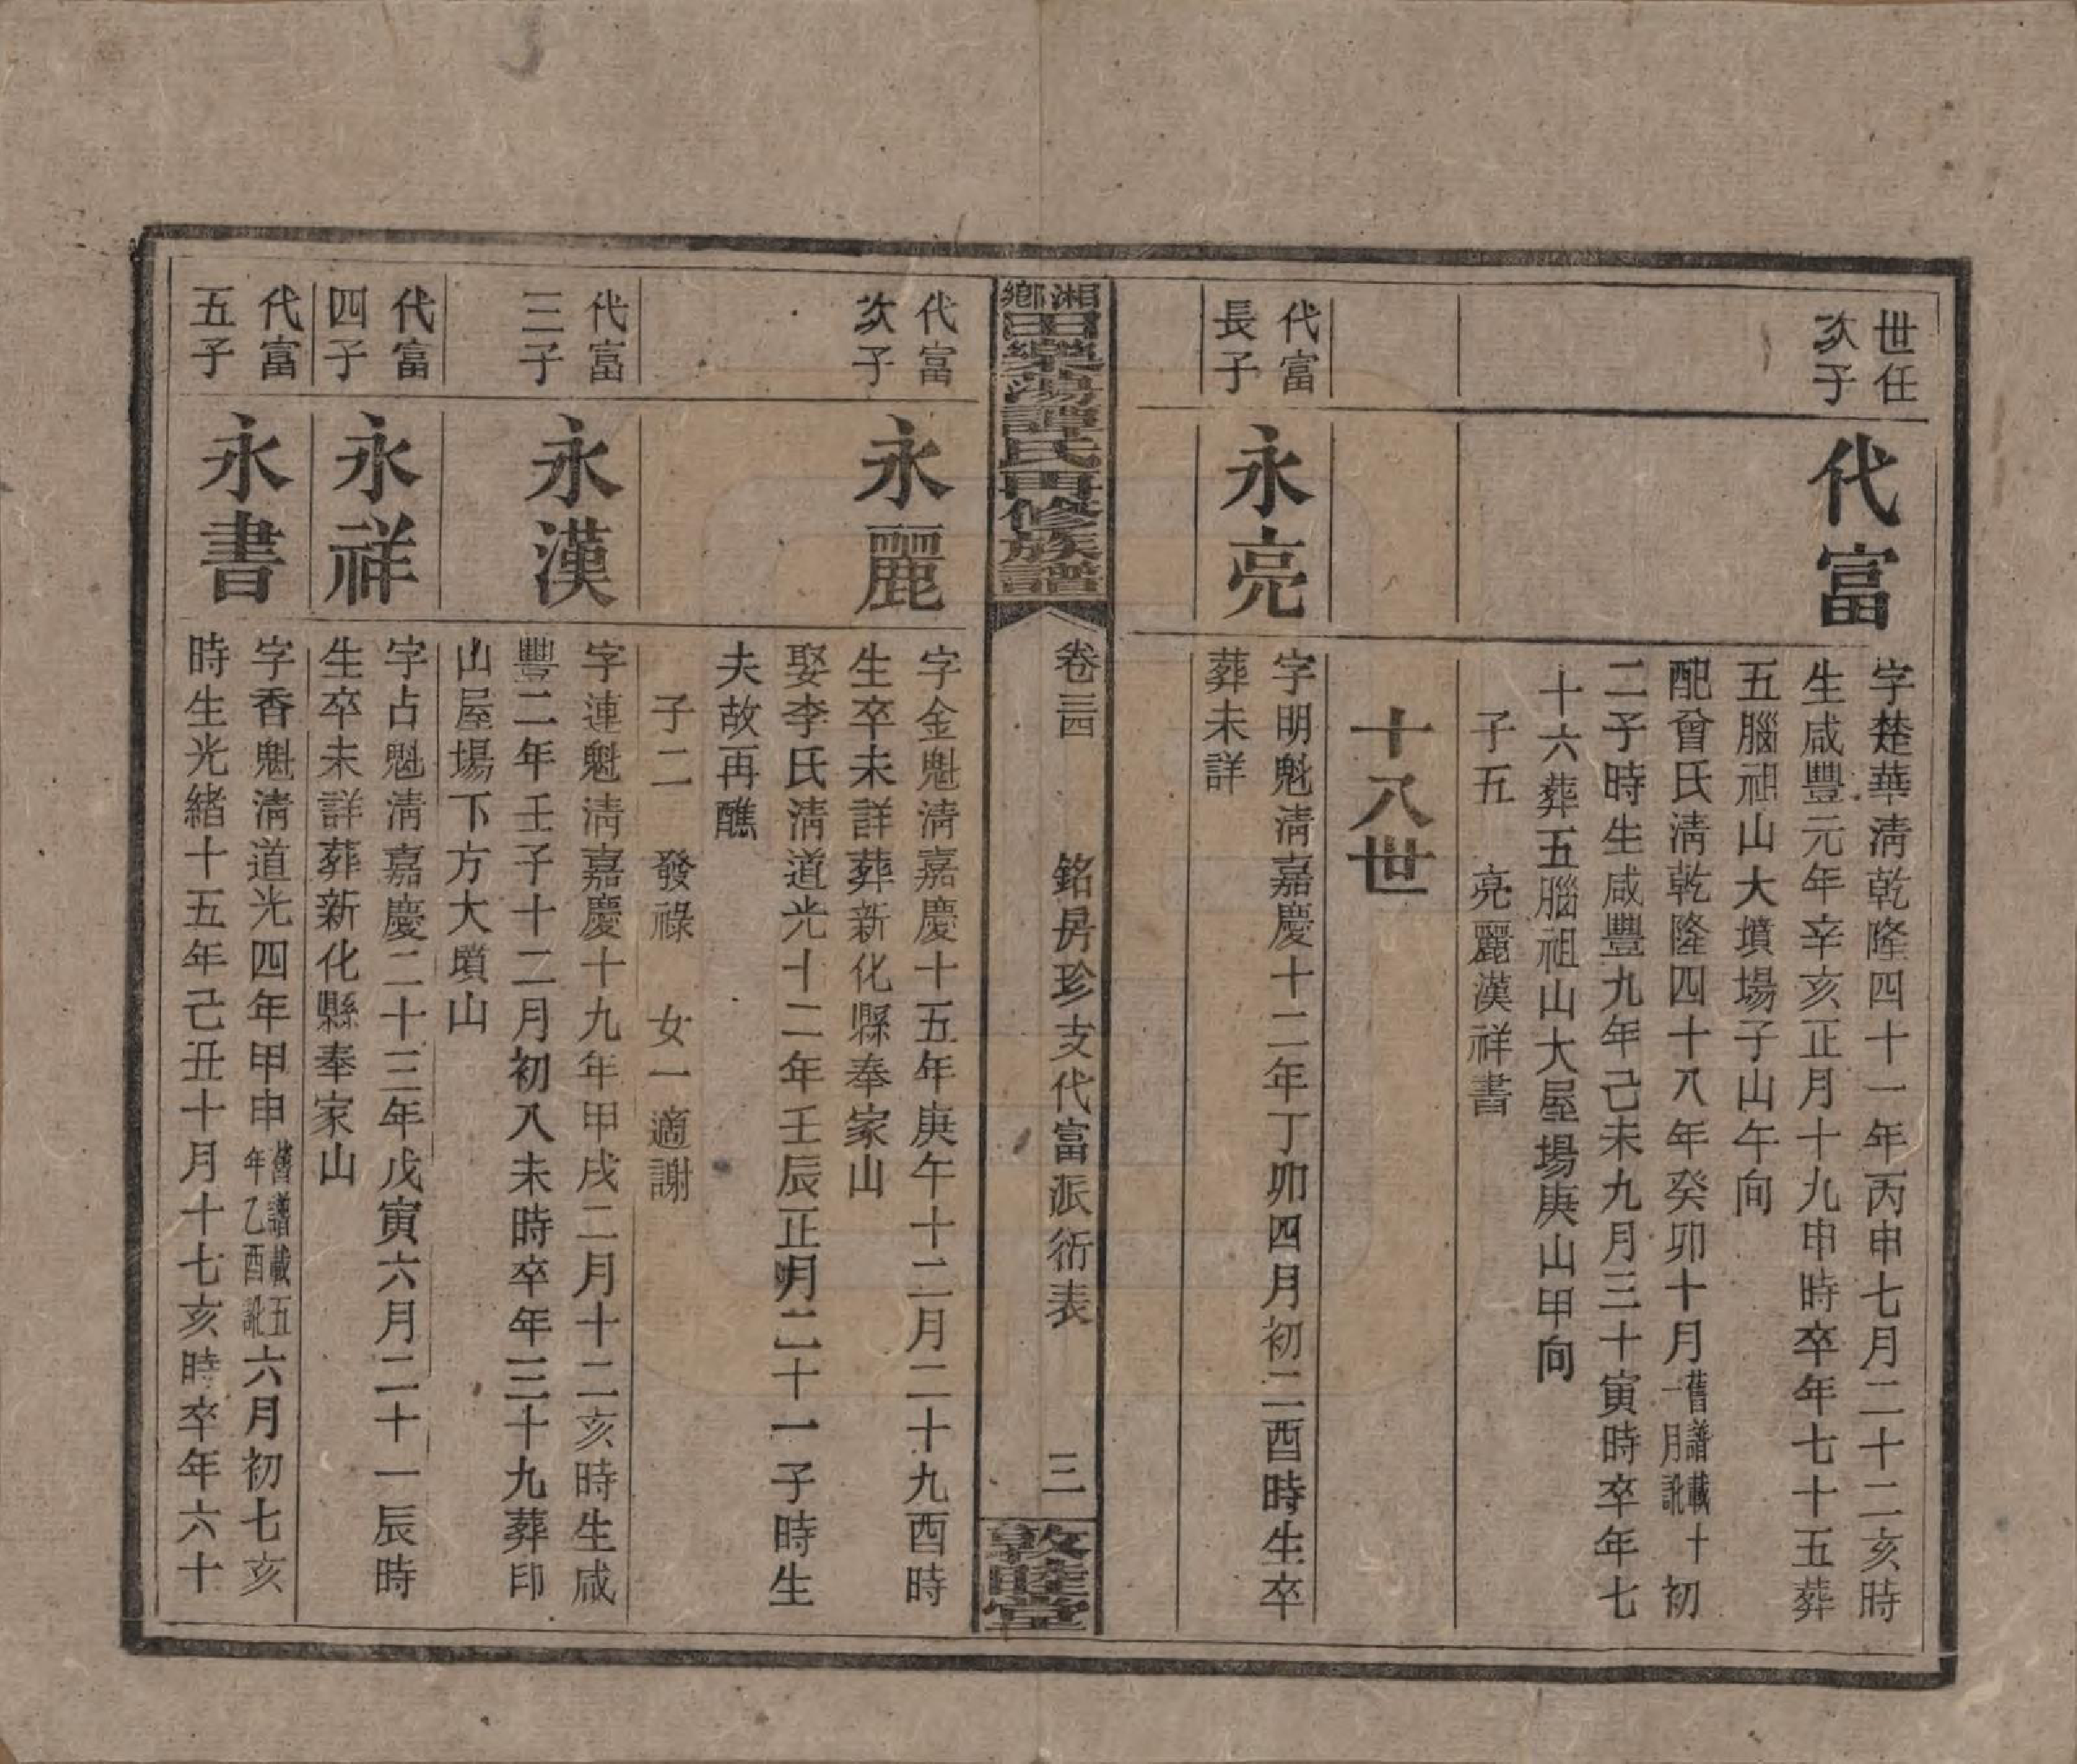 世任
次子
代富
字楚華淸乾隆四十一年丙申七月二十二亥時
生咸豐元年辛亥正月十九申時卒年七十五葬
五腦祖山大墳場子山午向
配曾氏淸乾隆四十八年癸卯十月舊譜載十一月訛初
二子時生咸豐九年己未九月三十寅時卒年七
十六葬五腦祖山大屋場庚山甲向
子五　亮麗漢祥書
十八世
代富
長子
永亮
字明魁淸嘉慶十二年丁卯四月初二酉時生卒
葬未詳
湘鄉田樂蕩譚氏再修族譜
卷三四
銘房珍支代富派衍表
三
敦睦堂
代富
次子
永麗
字金魁淸嘉慶十五年庚午十二月二十九酉時
生卒未詳葬新化縣奉家山
娶李氏淸道光十二年壬辰正月二十一子時生
夫故再醮
子二　發祿　女一適謝
代富
三子
永漢
字連魁淸嘉慶十九年甲戌二月十二亥時生咸
豐二年壬子十二月初八未時卒年三十九葬印
山屋場下方大墳山
代富
四子
永祥
字占魁淸嘉慶二十三年戊寅六月二十一辰時
生卒未詳葬新化縣奉家山
代富
五子
永書
字香魁淸道光四年甲申舊譜載五年乙酉訛六月初七亥
時生光緒十五年己丑十月十七亥時卒年六十